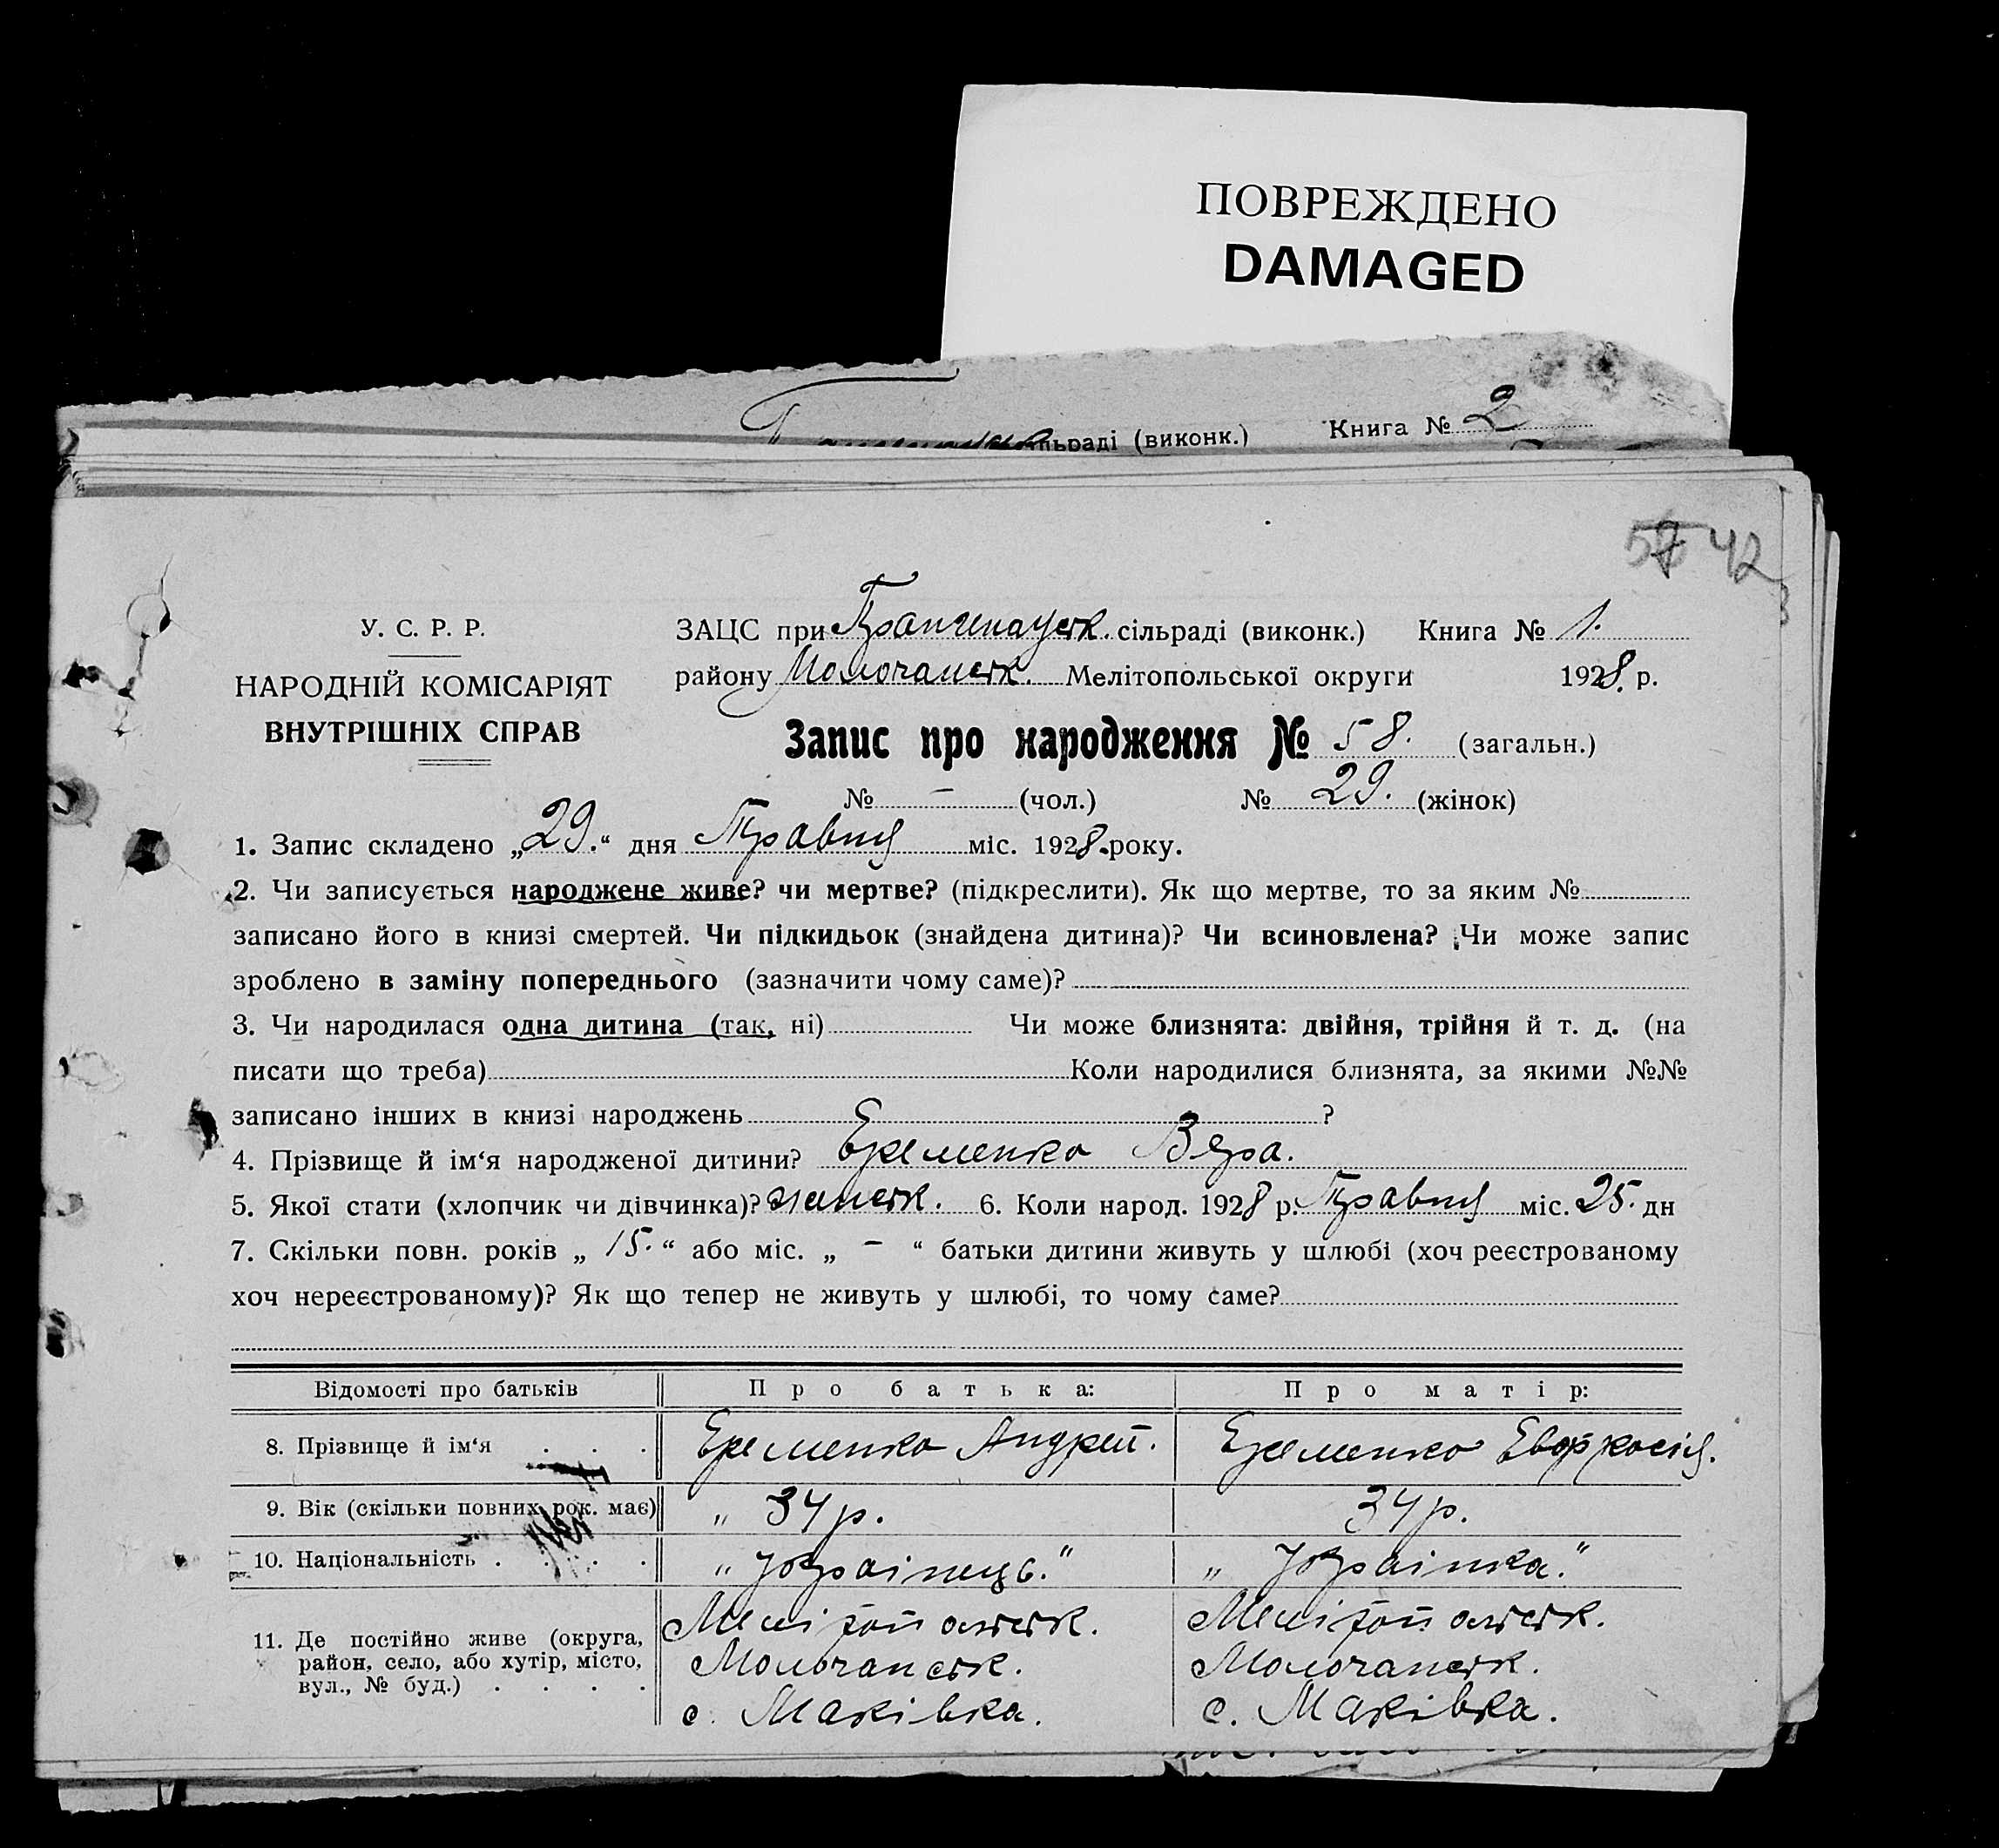 ПОВРЕЖДЕНО
DAMAGED
сільраді (виконк.) Книга № 2
42
У. С. Р. Р.
ЗАЦС при сільраді (виконк.) Книга № 1.
НАРОДНІЙ КОМІСАРІЯТ
району Молочанськ. Мелітопольської округи 1928. р.
ВНУТРІШНІХ СПРАВ
Запис про народження № 58. (загальн.)
№ – (чол.) № 29. (жінок)
1. Запис складено „29.“ дня Травня міс. 1928. року.
2. Чи записується народжене живе? чи мертве? (підкреслити). Як що мертве, то за яким №
записано його в книзі смертей. Чи підкидьок (знайдена дитина)? Чи всиновлена? Чи може запис
зроблено в заміну попереднього (зазначити чому саме)?
3. Чи народилася одна дитина (так, ні) Чи може близнята: двійня, трійня й т. д. (на
писати що треба) Коли народилися близнята, за якими №№
записано інших в книзі народжень ?
4. Прізвище й ім‘я народженої дитини? Еременко Вера.
5. Якої стати (хлопчик чи дівчинка)? женськ. 6. Коли народ. 1928 р. Травня міс. 25. дн
7. Скільки повн. років „ 15. “ або міс. „ – “ батьки дитини живуть у шлюбі (хоч реєстрованому
хоч нереєстрованому)? Як що тепер не живуть у шлюбі, то чому саме?
Відомості про батьків Про батька: Про матір:
8. Прізвище й ім‘я . . . Еременко Андрей. Еременко Евфросія.
9. Вік (скільки повних рок. має) „ 34 р. 34 р.
10. Національність . . . . „ Українець.“ „ Українка.“
11. Де постійно живе (округа, Мелітопольськ. Мелітопольськ.
район, село, або хутір, місто, Молочанськ. Молочанськ.
вул., № буд.) . . . . с. Маківка. с. Маківка.